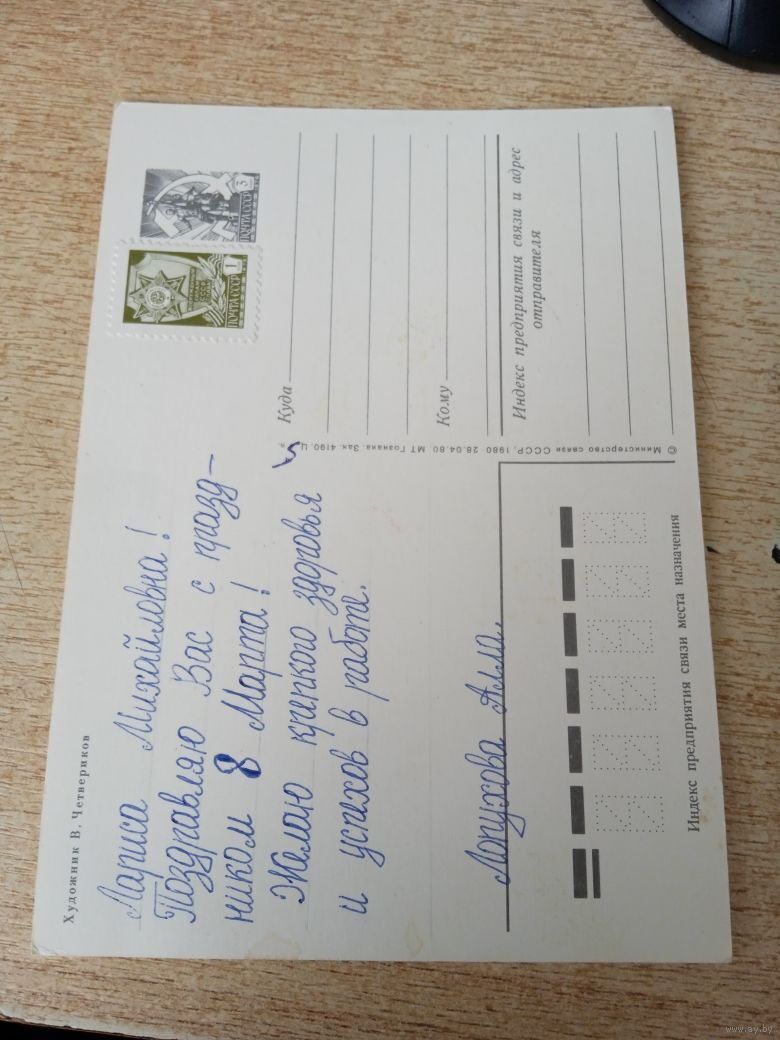 Художник В. Четвериков
Лариса Михайловна!
Поздравляю Вас с празд-
ником 8 Марта!
Желаю крепкого здоровья
и успехов в работе.
Лопухова Алла.
© Министерство связи СССР, 1980 28.04.80 МТ Гознака. Зак. 4190. Ц
ПОЧТА СССР 1
ПОЧТА СССР 3
Куда
Кому
Индекс предприятия связи и адрес
отправителя
Индекс предприятия связи места назначения
www.ay.by